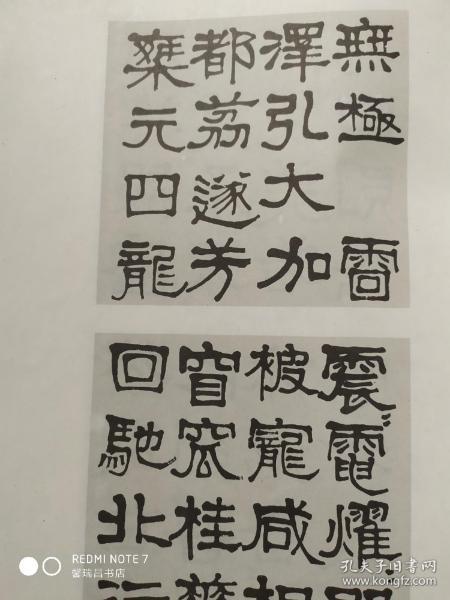 無極 雷
澤弘大加
都荔遂芳
乘元四龍
震〻電燿
被寵咸相
窅窊桂華
回馳北行
REDMI NOTE 7
馨瑞昌书店
孔夫子旧书网
www.kongfz.com